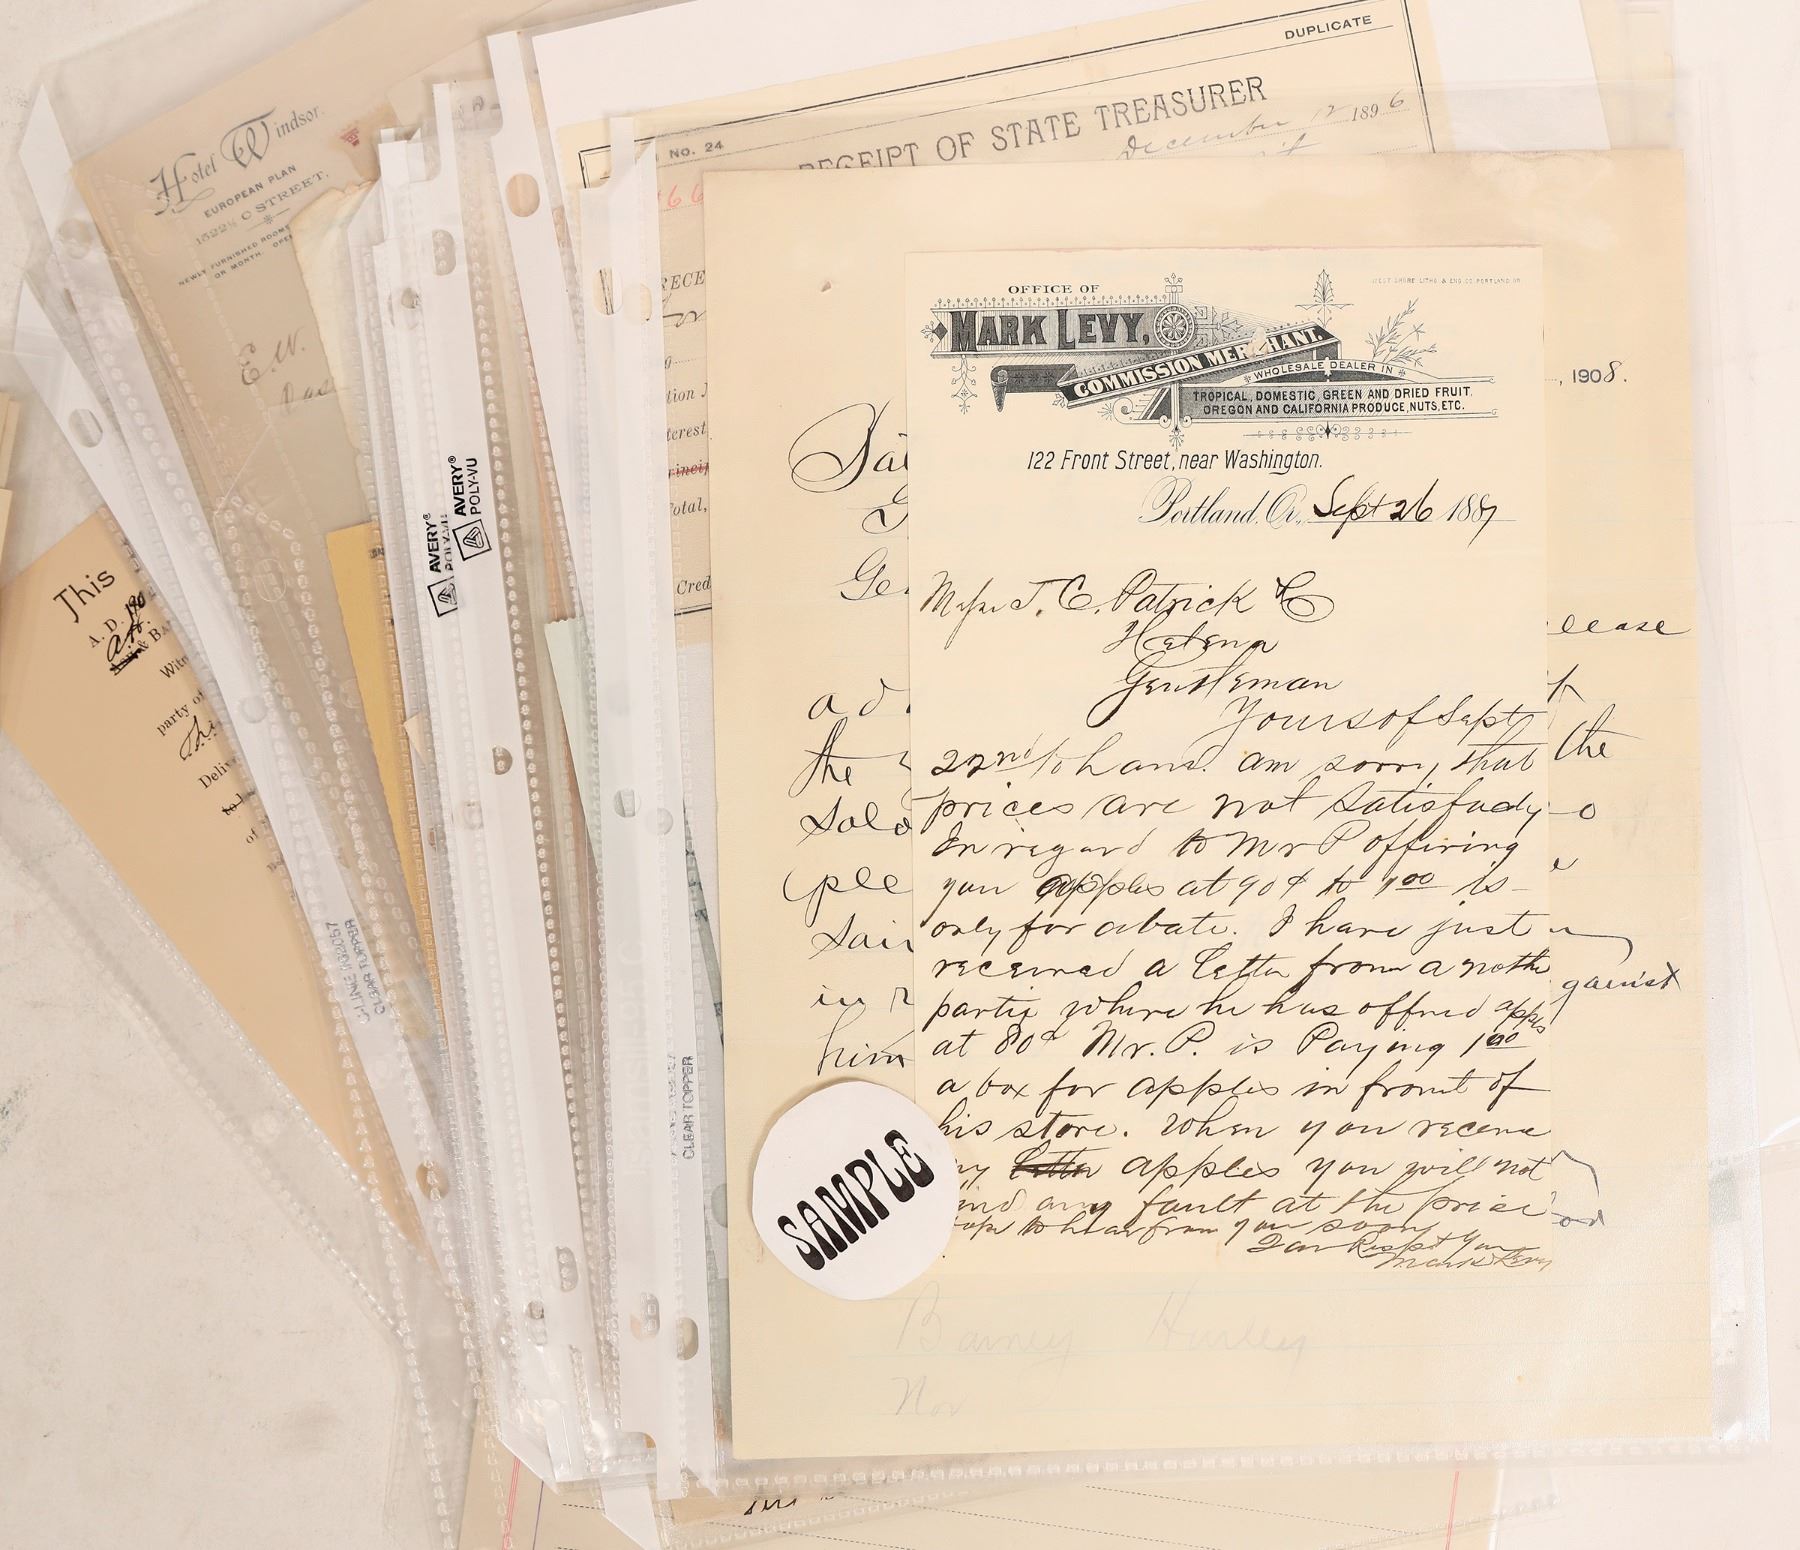 Hotel Windsor.
EUROPEAN PLAN
1522½ C STREET.
NEWLY FURNISHED ROOMS
OR MONTH. OPEN
E. W.
This
A. D. 190
& BA
Witn
party of
Deliv
to
of
AVERY®
POLY-VU
AVERY®
C-LINE
CLEAR TOPPER
CLEAR TOPPER
DUPLICATE
No. 24
RECEIPT OF STATE TREASURER
December 12 1896
66
RECE
tion
terest
Princip
Total,
Cred
, 1908.
ad
the
Sold
ple
Sai
in
him
lease
the
o
gainst
Barney Hurley
Nov
WEST SHORE LITHO. & ENG. CO. PORTLAND OR.
OFFICE OF
MARK LEVY,
COMMISSION MERCHANT.
WHOLESALE DEALER IN
TROPICAL, DOMESTIC, GREEN AND DRIED FRUIT.
OREGON AND CALIFORNIA PRODUCE, NUTS, ETC.
122 Front Street, near Washington.
Portland, Or., Sept 26 1887
Messrs J. C. Patrick & Co
Helena
Gentleman
Yours of Sept
22nd to hand. am sorry, that
prices are not Satisfacty
In regard to Mr P offiring
you apples at 90¢ to 1.00 is
only for abate. I have just
received a letter from anothe
partie where he has offred apples
at 80¢ Mr. P. is Paying 1.00
a box for apples in front of
his store. When you receive
my letter apples you will not
find any fault at the price
hope to hear from you soon
Your Respt Yours
Mark Levy
SAMPLE